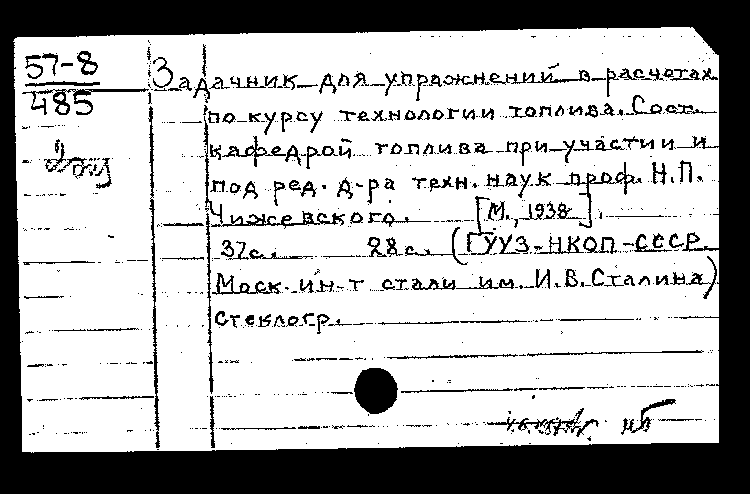 57-8
485
Задачник для упражнений в расчетах
по курсу технологии топлива. Сост.
кафедрой топлива при участии и
под ред. д-ра техн. наук проф. Н.П.
Чижевского. [М., 1938].
37с. 28 см. (ГУУЗ-НКОП-СССР.
Моск. ин-т стали им. И.В. Сталина)
Стеклогр.